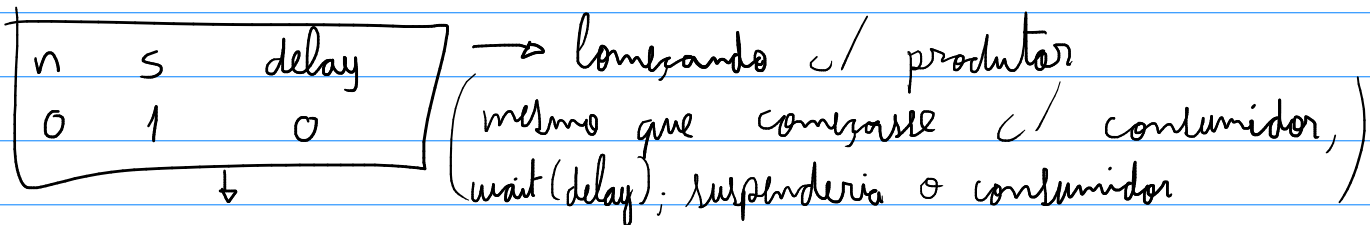 n s delay → Começando c/ produtor
0 1 0 (mesmo que começasse c/ consumidor,
wait(delay); suspenderia o consumidor)